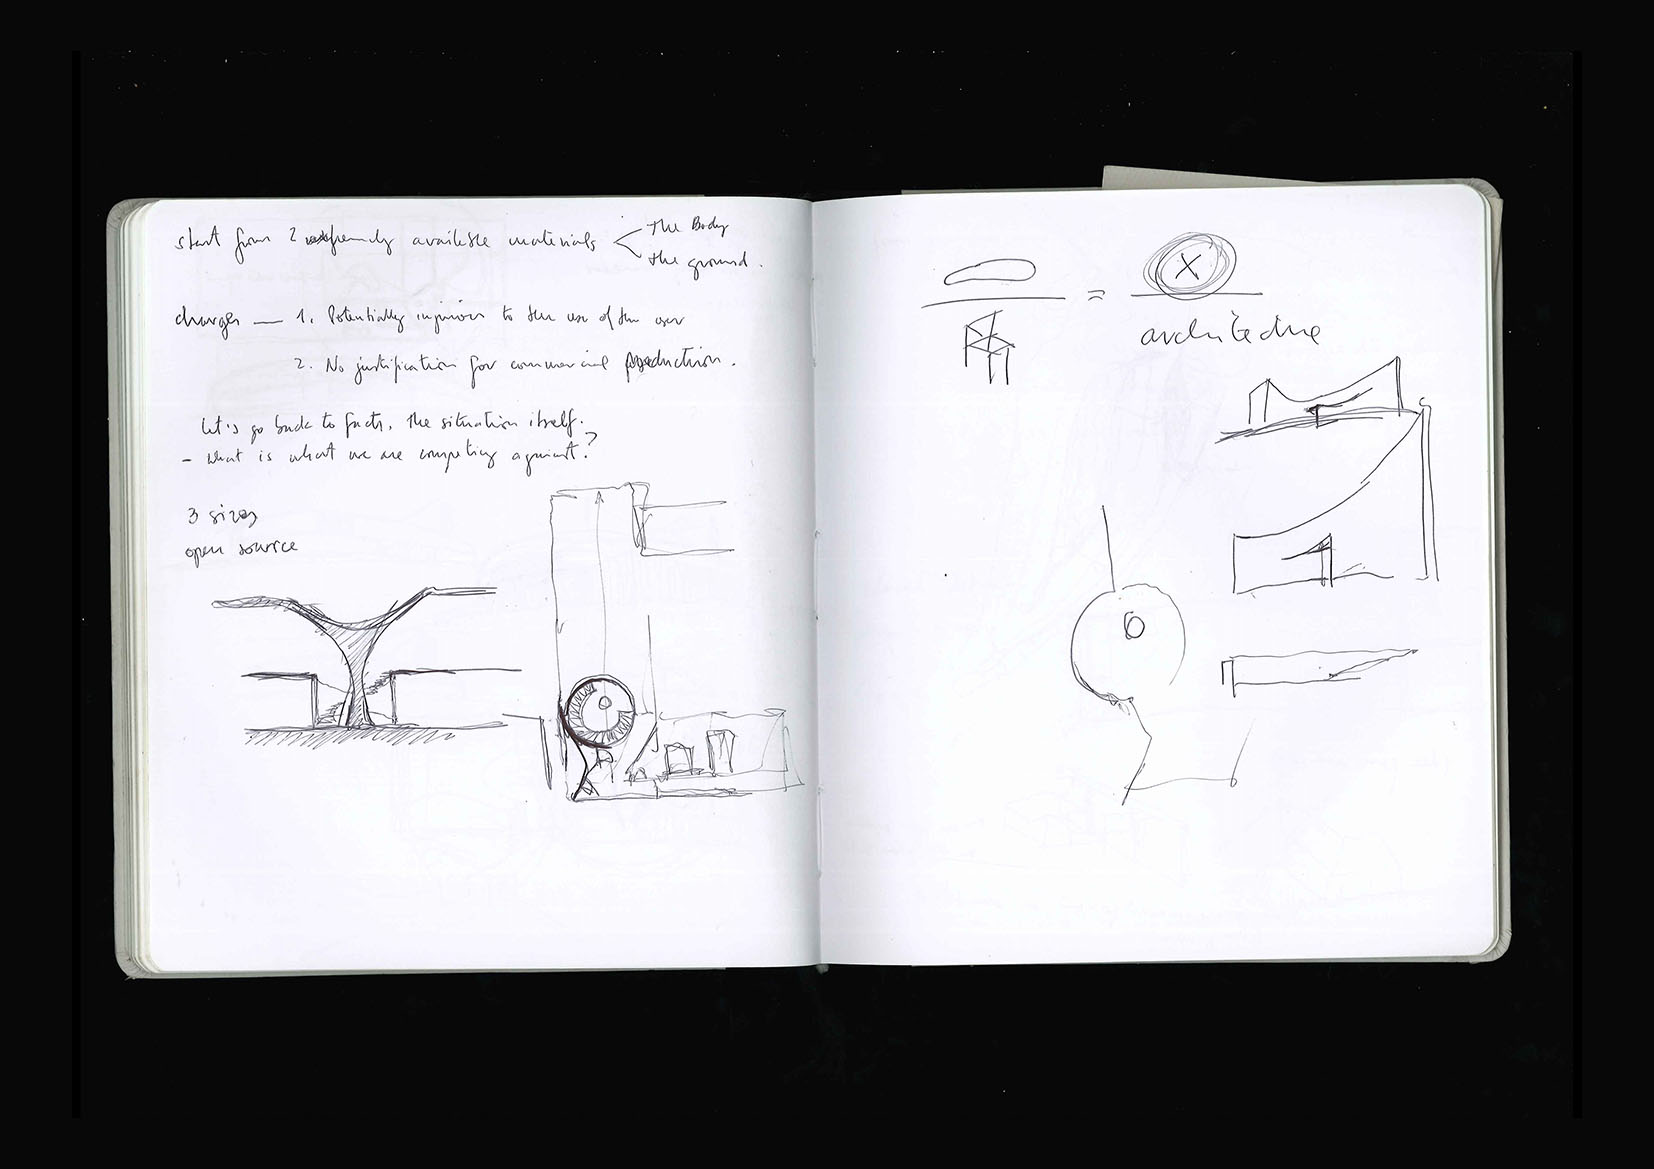 start from 2 extremely available materials
the Body
the ground.
charges — 1. Potentially injurious to the use of the user
2. No justification for commercial production.
Let's go back to facts, the situation itself.
- What is what we are competing against?
3 sizes
open source
=
X
architecture